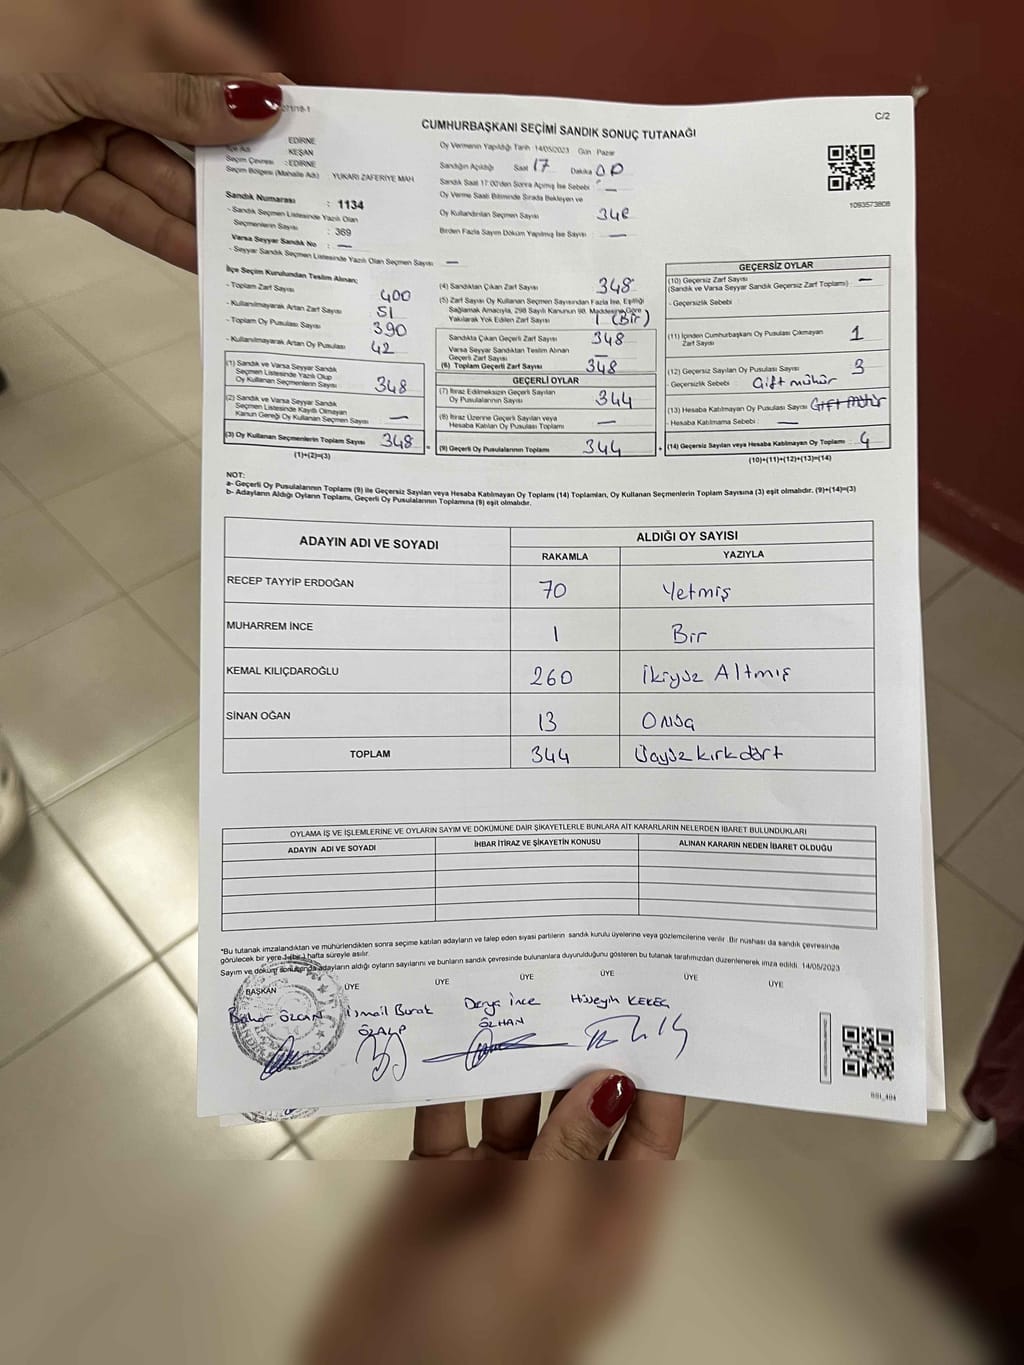 071/18-1
C/2
CUMHURBAŞKANI SEÇİMİ SANDIK SONUÇ TUTANAĞI
EDİRNE
İlçe Adı : KEŞAN
Seçim Çevresi : EDİRNE
Seçim Bölgesi (Mahalle Adı) : YUKARI ZAFERİYE MAH
Sandık Numarası : 1134
- Sandık Seçmen Listesinde Yazılı Olan
Seçmenlerin Sayısı : 369
Varsa Seyyar Sandık No : —
- Seyyar Sandık Seçmen Listesinde Yazılı Olan Seçmen Sayısı —
Oy Vermenin Yapıldığı Tarih 14/05/2023 Gün : Pazar
Sandığın Açıldığı Saat 17 Dakika 00
Sandık Saat 17:00'den Sonra Açılmış İse Sebebi : —
Oy Verme Saati Bitiminde Sırada Bekleyen ve
Oy Kullandırılan Seçmen Sayısı
Birden Fazla Sayım Döküm Yapılmış İse Sayısı : —
1093573808
İlçe Seçim Kurulundan Teslim Alınan;
- Toplam Zarf Sayısı 400
- Kullanılmayarak Artan Zarf Sayısı 51
- Toplam Oy Pusulası Sayısı 390
- Kullanılmayarak Artan Oy Pusulası 42
(1) Sandık ve Varsa Seyyar Sandık
Seçmen Listesinde Yazılı Olup
Oy Kullanan Seçmenlerin Sayısı 348
(2) Sandık ve Varsa Seyyar Sandık
Seçmen Listesinde Kayıtlı Olmayan
Kanun Gereği Oy Kullanan Seçmen Sayısı —
(3) Oy Kullanan Seçmenlerin Toplam Sayısı 348 =
(1)+(2)=(3)
(4) Sandıktan Çıkan Zarf Sayısı 348
(5) Zarf Sayısı Oy Kullanan Seçmen Sayısından Fazla İse, Eşitliği
Sağlamak Amacıyla, 298 Sayılı Kanunun 98. Maddesine Göre
Yakılarak Yok Edilen Zarf Sayısı 1 (Bir)
Sandıkta Çıkan Geçerli Zarf Sayısı 348
Varsa Seyyar Sandıktan Teslim Alınan
Geçerli Zarf Sayısı —
(6) Toplam Geçerli Zarf Sayısı 348
GEÇERLİ OYLAR
(7) İtiraz Edilmeksizin Geçerli Sayılan
Oy Pusulalarının Sayısı 344
(8) İtiraz Üzerine Geçerli Sayılan veya
Hesaba Katılan Oy Pusulaları Toplamı —
(9) Geçerli Oy Pusulalarının Toplamı 344 +
GEÇERSİZ OYLAR
(10) Geçersiz Zarf Sayısı
(Sandık ve Varsa Seyyar Sandık Geçersiz Zarf Toplamı) : —
- Geçersizlik Sebebi :
(11) İçinden Cumhurbaşkanı Oy Pusulası Çıkmayan
Zarf Sayısı : 1
(12) Geçersiz Sayılan Oy Pusulası Sayısı : 3
- Geçersizlik Sebebi : Çift mühür
(13) Hesaba Katılmayan Oy Pusulası Sayısı Çift mühür
- Hesaba Katılmama Sebebi : —
(14) Geçersiz Sayılan veya Hesaba Katılmayan Oy Toplamı : 4
(10)+(11)+(12)+(13)=(14)
NOT:
a- Geçerli Oy Pusulalarının Toplamı (9) ile Geçersiz Sayılan veya Hesaba Katılmayan Oy Toplamı (14) Toplamları, Oy Kullanan Seçmenlerin Toplam Sayısına (3) eşit olmalıdır. (9)+(14)=(3)
b- Adayların Aldığı Oyların Toplamı, Geçerli Oy Pusulalarının Toplamına (9) eşit olmalıdır.
ADAYIN ADI VE SOYADI
ALDIĞI OY SAYISI
RAKAMLA YAZIYLA
RECEP TAYYİP ERDOĞAN 70 Yetmiş
MUHARREM İNCE 1 Bir
KEMAL KILIÇDAROĞLU 260 İkiyüz Altmış
SİNAN OĞAN 13 Onüç
TOPLAM 344 Üçyüzkırkdört
OYLAMA İŞ VE İŞLEMLERİNE VE OYLARIN SAYIM VE DÖKÜMÜNE DAİR ŞİKAYETLERLE BUNLARA AİT KARARLARIN NELERDEN İBARET BULUNDUKLARI
ADAYIN ADI VE SOYADI İHBAR İTİRAZ VE ŞİKAYETİN KONUSU ALINAN KARARIN NEDEN İBARET OLDUĞU
*Bu tutanak imzalandıktan ve mühürlendikten sonra seçime katılan adayların ve talep eden siyasi partilerin sandık kurulu üyelerine veya gözlemcilerine verilir. Bir nüshası da sandık çevresinde
görülecek bir yere 1 (bir) hafta süreyle asılır.
Sayım ve döküm sonucunda adayların aldığı oyların sayılarını ve bunların sandık çevresinde bulunanlara duyurulduğunu gösteren bu tutanak tarafımızdan düzenlenerek imza edildi. 14/05/2023
BAŞKAN ÜYE ÜYE ÜYE ÜYE ÜYE ÜYE
Bahar ÖZCAN İsmail Burak ÖZALP Derya İnce ÖZHAN Hüseyin KEKEÇ